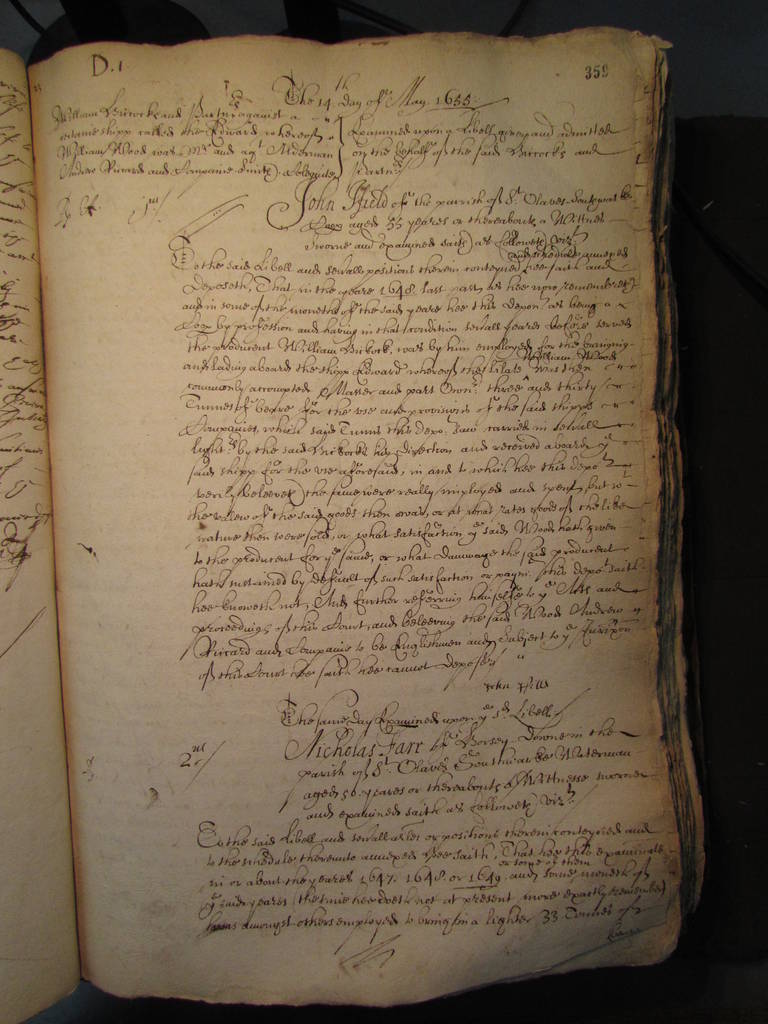 D. 1
359
The 14th day of May. 1655.
William Birrocke and against a
certaine shipp called the Edward whereof
William Wood was Mr and agt Alderman
Andrew Ricard and Companie
Examined upon a Libell given and admitted
on the behalfe of the said Birrocke and
1us
John Ffield of the parrish of St. Olaves Southwarke
aged 55 yeares or thereabouts a Wittnes
sworne and examined saith as followeth vizt
and schedule annexed
To the said Libell and severall positions therein conteyned hee saith and
deposeth, That in the yeare 1648 last past as hee now remembreth
and in some of the moneths of the said yeare hee this deponent being a
by profession and having in that condition severall yeares before served
the producent William Birrock, was by him employed for the bringing
William Wood
and lading aboard the shipp Edward whereof the was then
commonly accompted Master and part Owner, three and thirty
Tunnes of beere for the use and provisions of the said shipps
Companies, which said Tunns this depo: saw carried in severall
lighters by the said Birrocks direction and received aboard ye
said shipp for the use aforesaid, in and to which hee this depot
verily beleeveth the same were really imployed and spent, but
the vallew of the said goods then was, or at what rates goods of the like
nature then were sold, or what satisfaction ye said Wood hath given
to the producent for ye same, or what dammage the said producent
hath sustained by default of such satisfaction or paymt. this depot saith
hee knoweth not, And further referring himselfe to ye Acts and
proceedings of this Court, and beleeving the said Wood Andrew
Ricard and Companie to be Englishmen and Subject to ye
of this Court hee saith hee cannot depose
John Ffeild
The same day Examined upon ye sd Libell
2us
Nicholas Farr of Horsey downe in the
parish of St. Olaves Southwarke Waterman
aged 50 yeares or thereabouts a Wittnesse sworne
and examined saith as followeth vizt
To the said Libell and severall arles or positions therein conteyned and
to the schedule thereunto annexed hee saith, That hee this examinate
or some of them
in or about the yeares 1647. 1648. or 1649. and some moneth of
ye said yeares (the time hee doth not at present more exactly remember)
was amongst others employed to bring in a lighter 33 Tonnes of